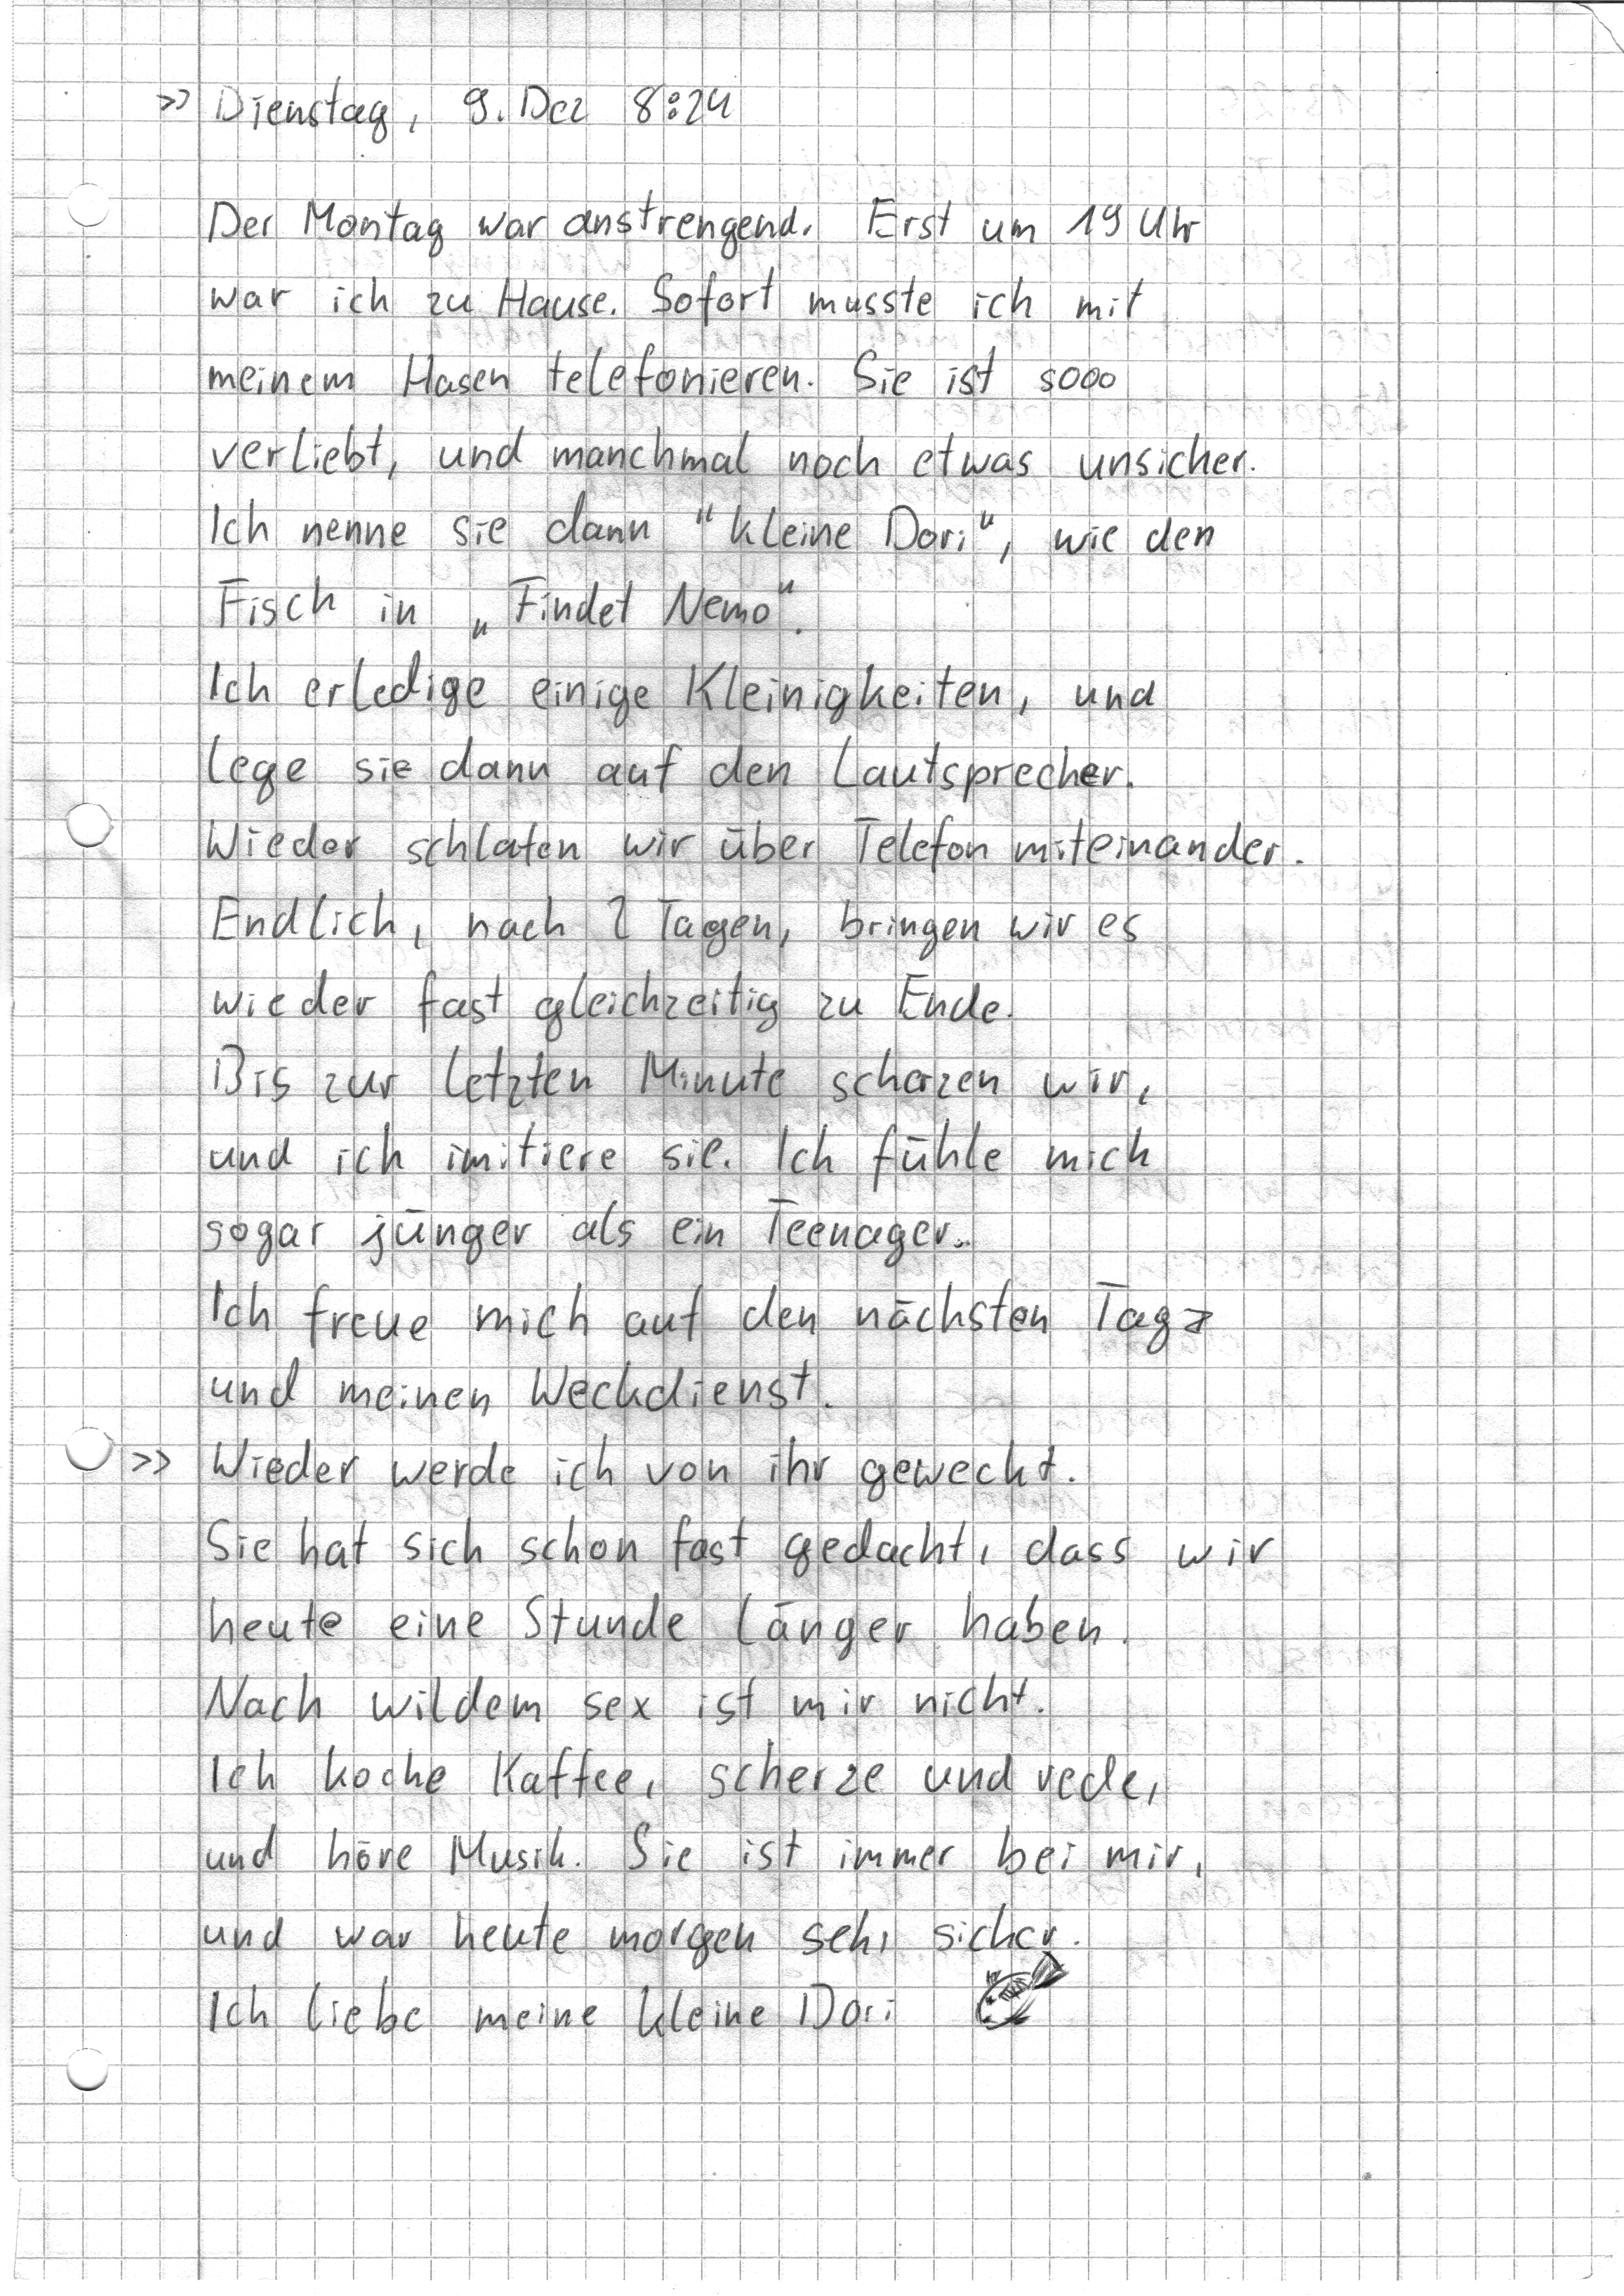 >> Dienstag, 9. Dez 8:24
Der Montag war anstrengend. Erst um 19 Uhr
war ich zu Hause. Sofort musste ich mit
meinem Hasen telefonieren. Sie ist sooo
verliebt, und manchmal noch etwas unsicher.
Ich nenne sie dann "kleine Dori", wie den
Fisch in „Findet Nemo".
Ich erledige einige Kleinigkeiten, und
lege sie dann auf den Lautsprecher.
Wieder schlafen wir über Telefon miteinander.
Endlich, nach 2 Tagen, bringen wir es
wieder fast gleichzeitig zu Ende.
Bis zur letzten Minute scherzen wir,
und ich imitiere sie. Ich fühle mich
sogar jünger als ein Teenager..
Ich freue mich auf den nächsten Tag
und meinen Weckdienst.
>> Wieder werde ich von ihr geweckt.
Sie hat sich schon fast gedacht, dass wir
heute eine Stunde länger haben.
Nach wildem sex ist mir nicht.
Ich koche Kaffee, scherze und rede,
und höre Musik. Sie ist immer bei mir,
und war heute morgen sehr sicher.
Ich liebe meine kleine Dori